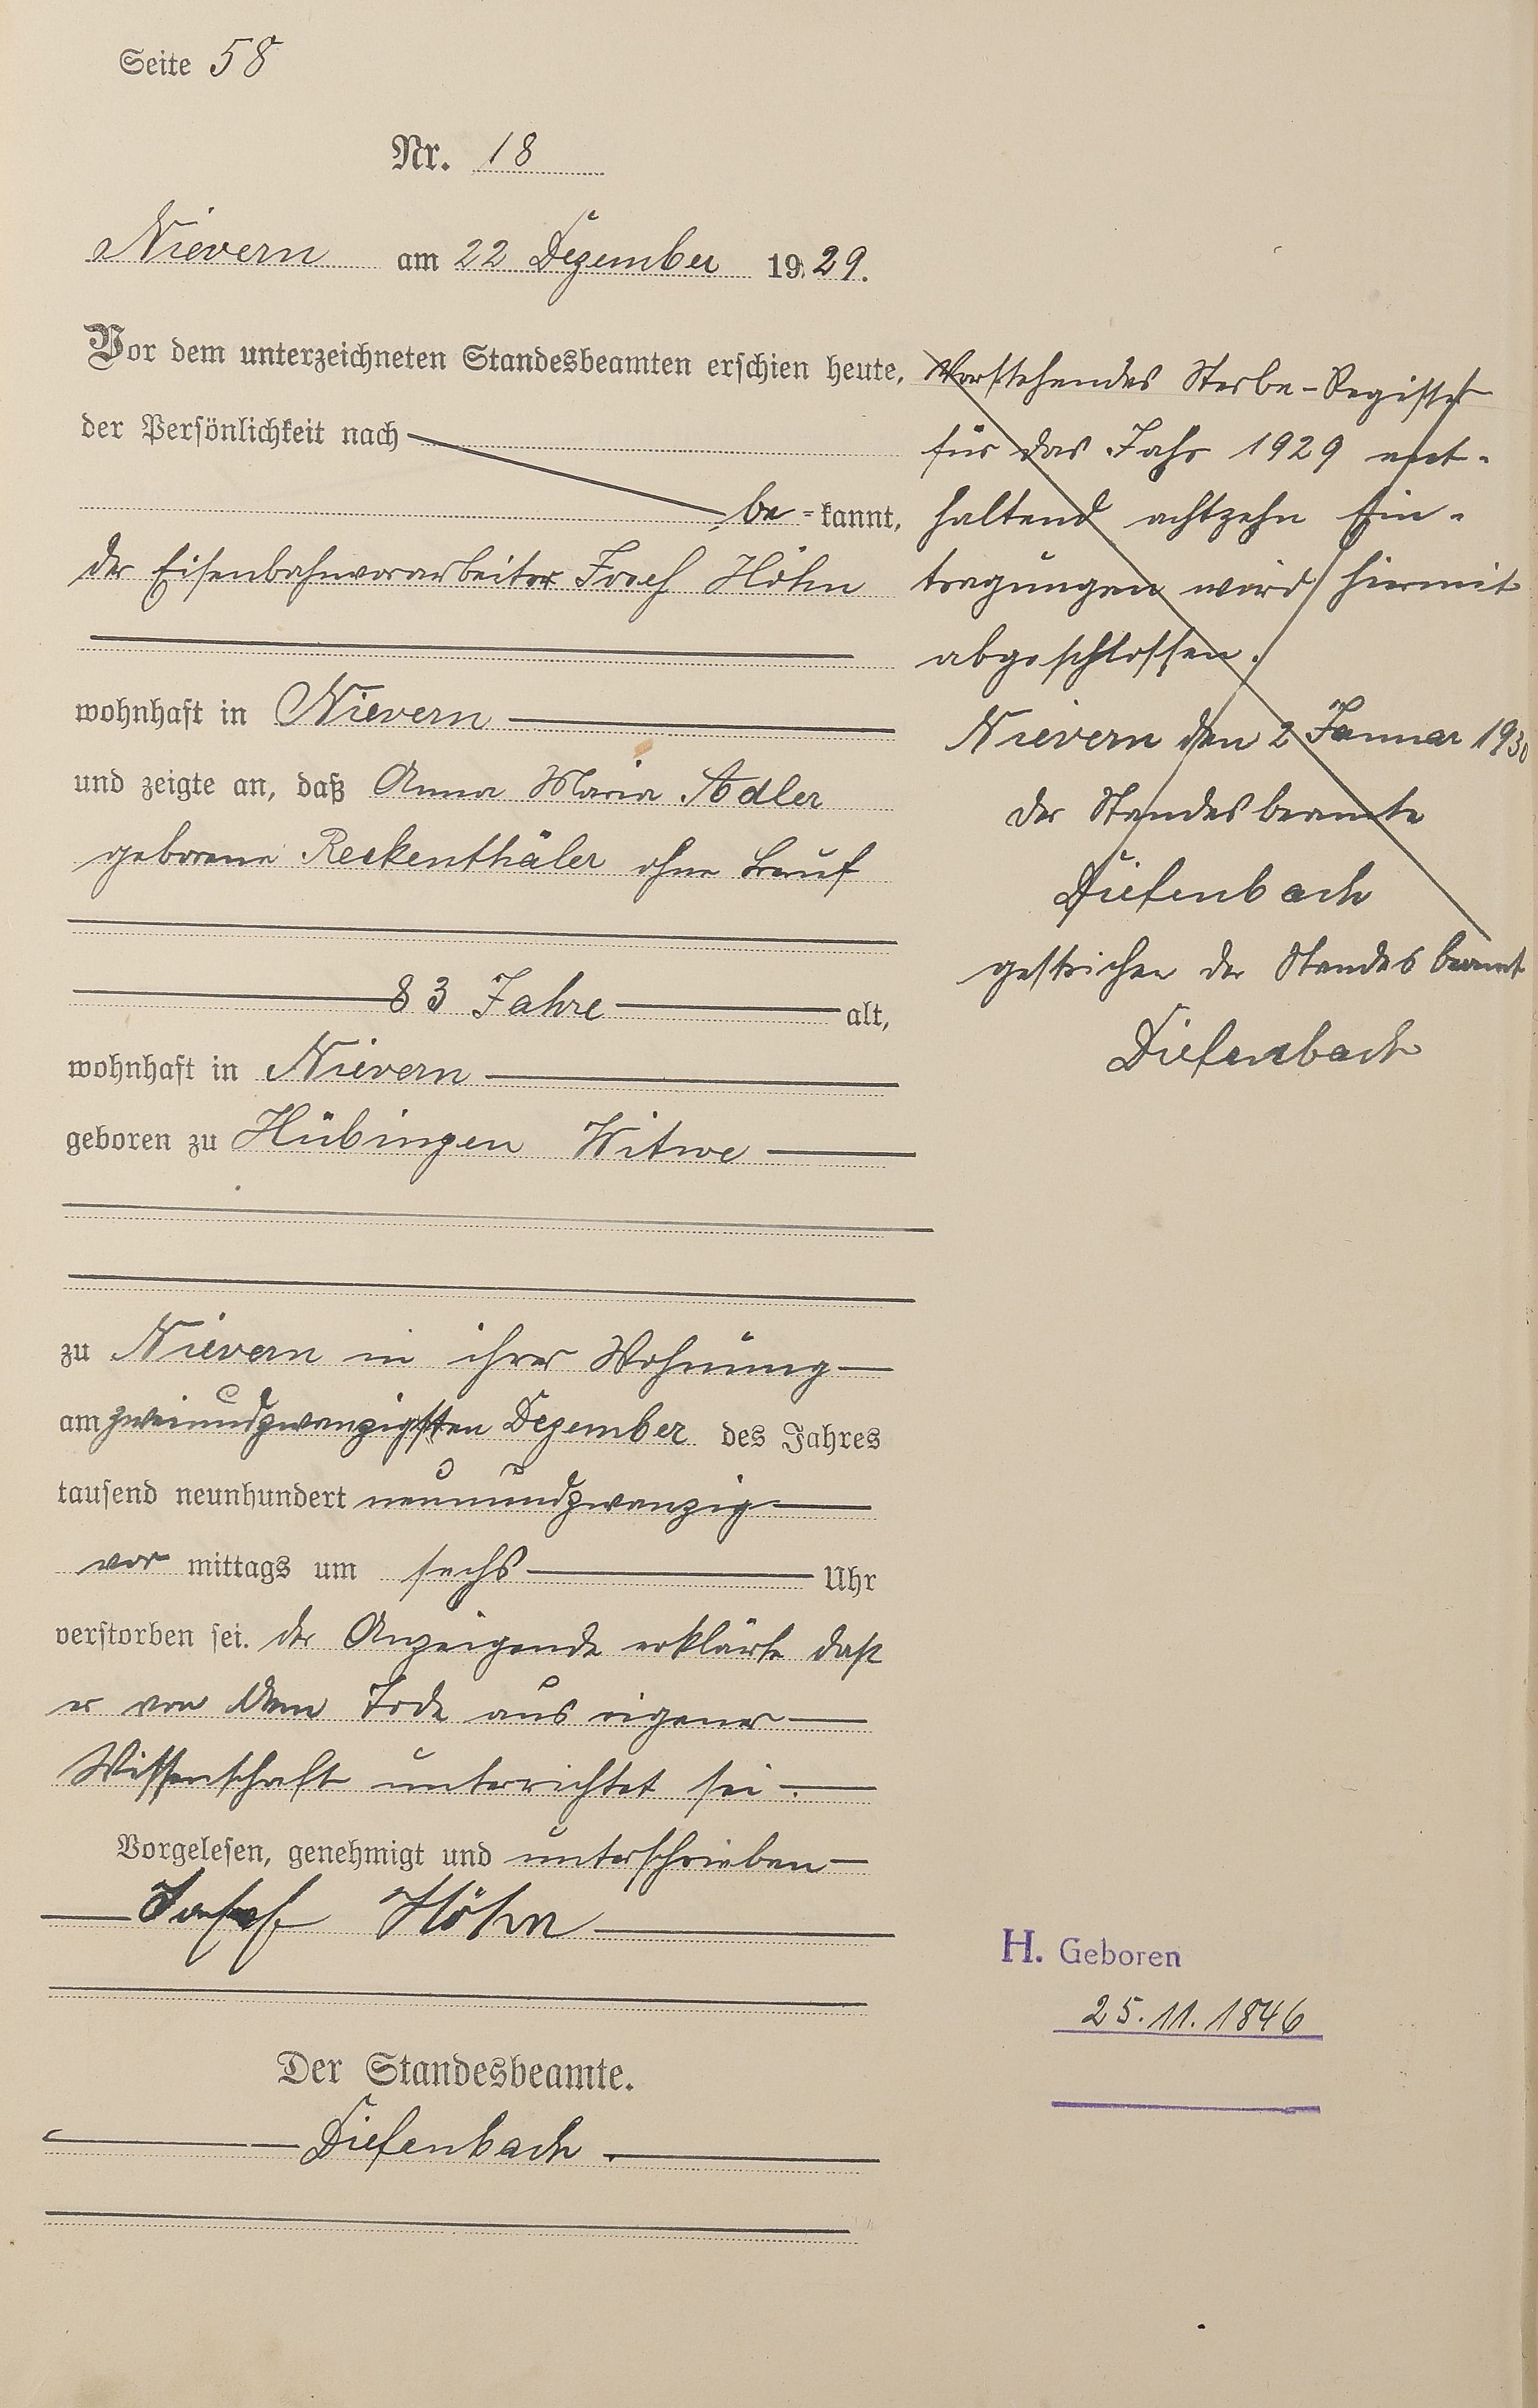 Seite 58
Nr. 18
Nievern am 22 Dezember 1929.
Vor dem unterzeichneten Standesbeamten erschien heute,
der Persönlichkeit nach
be=kannt,
der Eisenbahnvorarbeiter Josef Höhn
wohnhaft in Nievern
und zeigte an, daß Anna Maria Adler
geborene Reckenthäler ohne Beruf
83 Jahre alt,
wohnhaft in Nievern
geboren zu Hübingen Witwe
zu Nievern in ihrer Wohnung
am zweiundzwanzigsten Dezember des Jahres
tausend neunhundert neunundzwanzig
vor mittags um sechs Uhr
verstorben sei. der Anzeigende erklärte daß
er von dem Tode aus eigener
Wissenschaft unterrichtet sei.
Vorgelesen, genehmigt und unterschrieben
Josef Höhn
Der Standesbeamte.
Diefenbach.
Vorstehendes Sterbe-Register
für das Jahr 1929 ent-
haltend achtzehn Ein-
tragungen wird hiermit
abgeschlossen.
Nievern den 2 Januar 1930
der Standesbeamte
Diefenbach
gestrichen der Standesbeamt
Diefenbach
H. Geboren
25.11.1846